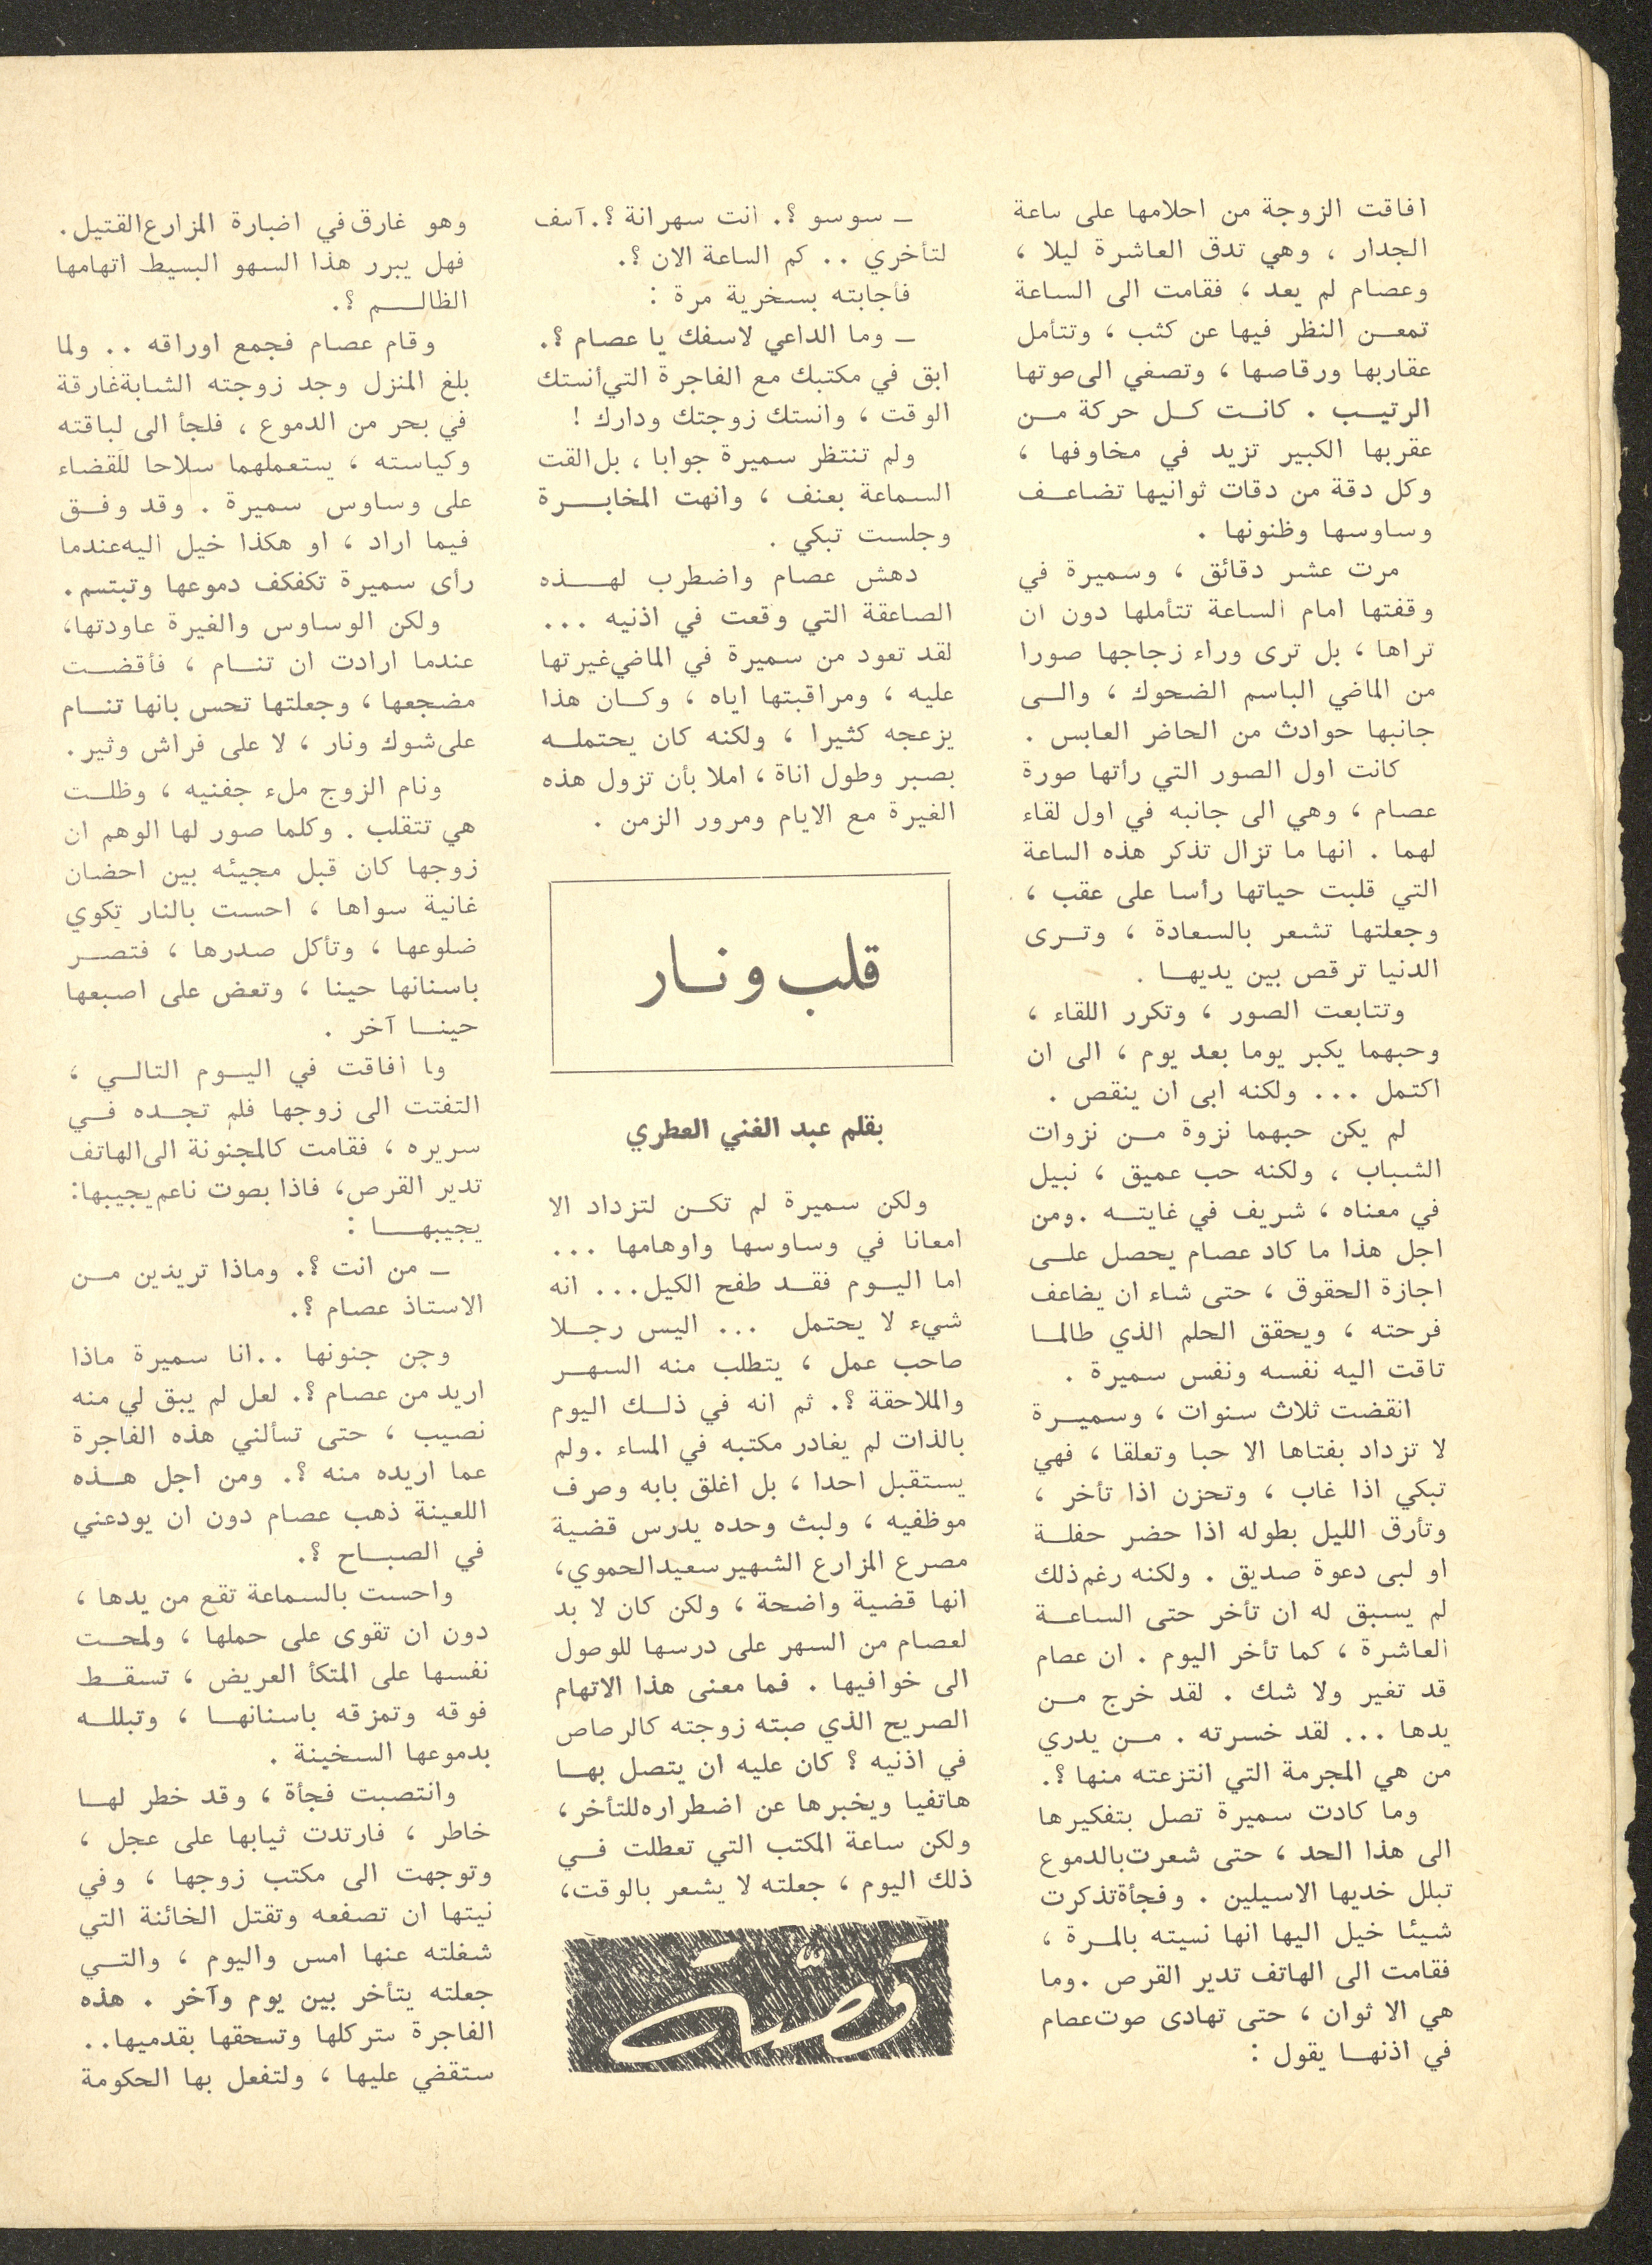 افاقت الزوجة من احلامها على ساعة
الجدار ، وهي تدق العاشرة ليلا ،
وعصام لم يعد ، فقامت الى الساعة
تمعن النظر فيها عن كثب ، وتتأمل
عقاربها ورقاصها ، وتصغي الى صوتها
الرتيب . كانت كل حركة من
عقربها الكبير تزيد في مخاوفها ،
وكل دقة من دقات ثوانيها تضاعف
وساوسها وظنونها .
مرت عشر دقائق ، وسميرة في
وقفتها امام الساعة تتأملها دون ان
تراها ، بل ترى وراء زجاجها صورا
من الماضي الباسم الضحوك ، والى
جانبها حوادث من الحاضر العابس .
كانت اول الصور التي رأتها صورة
عصام ، وهي الى جانبه في اول لقاء
لهما . انها ما تزال تذكر هذه الساعة
التي قلبت حياتها رأسا على عقب ،
وجعلتها تشعر بالسعادة ، وترى
الدنيا ترقص بين يديها .
وتتابعت الصور ، وتكرر اللقاء ،
وحبهما يكبر يوما بعد يوم ، الى ان
اكتمل ... ولكنه ابى ان ينقص .
لم يكن حبهما نزوة من نزوات
الشباب ، ولكنه حب عميق ، نبيل
في معناه ، شريف في غايته . ومن
اجل هذا ما كاد عصام يحصل على
اجازة الحقوق ، حتى شاء ان يضاعف
فرحته ، ويحقق الحلم الذي طالما
تاقت اليه نفسه ونفس سميرة .
انقضت ثلاث سنوات ، وسميرة
لا تزداد بفتاها الا حبا وتعلقا ، فهي
تبكي اذا غاب ، وتحزن اذا تأخر ،
وتأرق الليل بطوله اذا حضر حفلة
او لبى دعوة صديق . ولكنه رغم ذلك
لم يسبق له ان تأخر حتى الساعة
العاشرة ، كما تأخر اليوم . ان عصام
قد تغير ولا شك . لقد خرج من
يدها ... لقد خسرته . من يدري
من هي المجرمة التي انتزعته منها ؟.
وما كادت سميرة تصل بتفكيرها
الى هذا الحد ، حتى شعرت بالدموع
تبلل خديها الاسيلين . وفجأة تذكرت
شيئا خيل اليها انها نسيته بالمرة ،
فقامت الى الهاتف تدير القرص . وما
هي الا ثوان ، حتى تهادى صوت عصام
في اذنها يقول :
ـ سوسو ؟. انت سهرانة ؟. آسف
لتأخري .. كم الساعة الان ؟.
فأجابته بسخرية مرة :
ـ وما الداعي لاسفك يا عصام ؟.
ابق في مكتبك مع الفاجرة التي أنستك
الوقت ، وانستك زوجتك ودارك !
ولم تنتظر سميرة جوابا ، بل القت
السماعة بعنف ، وانهت المخابرة
وجلست تبكي .
دهش عصام واضطرب لهذه
الصاعقة التي وقعت في اذنيه ...
لقد تعود من سميرة في الماضي غيرتها
عليه ، ومراقبتها اياه ، وكان هذا
يزعجه كثيرا ، ولكنه كان يحتمله
بصبر وطول اناة ، املا بأن تزول هذه
الغيرة مع الايام ومرور الزمن .
قلب ونار
بقلم عبد الغني العطري
ولكن سميرة لم تكن لتزداد الا
امعانا في وساوسها واوهامها ...
اما اليوم فقد طفح الكيل... انه
شيء لا يحتمل ... اليس رجلا
صاحب عمل ، يتطلب منه السهر
والملاحقة ؟. ثم انه في ذلك اليوم
بالذات لم يغادر مكتبه في المساء . ولم
يستقبل احدا ، بل اغلق بابه وصرف
موظفيه ، ولبث وحده يدرس قضية
مصرع المزارع الشهير سعيد الحموي،
انها قضية واضحة ، ولكن كان لا بد
لعصام من السهر على درسها للوصول
الى خوافيها . فما معنى هذا الاتهام
الصريح الذي صبته زوجته كالرصاص
في اذنيه ؟ كان عليه ان يتصل بها
هاتفيا ويخبرها عن اضطراره للتأخر،
ولكن ساعة المكتب التي تعطلت في
ذلك اليوم ، جعلته لا يشعر بالوقت،
قصّة
وهو غارق في اضبارة المزارع القتيل .
فهل يبرر هذا السهو البسيط اتهامها
الظالم ؟.
وقام عصام فجمع اوراقه .. ولما
بلغ المنزل وجد زوجته الشابة غارقة
في بحر من الدموع ، فلجأ الى لباقته
وكياسته ، يستعملهما سلاحا للقضاء
على وساوس سميرة . وقد وفق
فيما اراد ، او هكذا خيل اليه عندما
رأى سميرة تكفكف دموعها وتبتسم .
ولكن الوساوس والغيرة عاودتها،
عندما ارادت ان تنام ، فأقضت
مضجعها ، وجعلتها تحس بانها تنام
على شوك ونار ، لا على فراش وثير .
ونام الزوج ملء جفنيه ، وظلت
هي تتقلب . وكلما صور لها الوهم ان
زوجها كان قبل مجيئه بين احضان
غانية سواها ، احست بالنار تكوي
ضلوعها ، وتأكل صدرها ، فتصر
باسنانها حينا ، وتعض على اصبعها
حينا آخر .
وا افاقت في اليوم التالي ،
التفتت الى زوجها فلم تجده في
سريره ، فقامت كالمجنونة الى الهاتف
تدير القرص، فاذا بصوت ناعم يجيبها:
يجيبها :
ـ من انت ؟. وماذا تريدين من
الاستاذ عصام ؟.
وجن جنونها ..انا سميرة ماذا
اريد من عصام ؟. لعل لم يبق لي منه
نصيب ، حتى تسألني هذه الفاجرة
عما اريده منه ؟. ومن اجل هذه
اللعينة ذهب عصام دون ان يودعني
في الصباح ؟.
واحست بالسماعة تقع من يدها ،
دون ان تقوى على حملها ، ولمحت
نفسها على المتكأ العريض ، تسقط
فوقه وتمزقه باسنانها ، وتبلله
بدموعها السخينة .
وانتصبت فجأة ، وقد خطر لها
خاطر ، فارتدت ثيابها على عجل ،
وتوجهت الى مكتب زوجها ، وفي
نيتها ان تصفعه وتقتل الخائنة التي
شغلته عنها امس واليوم ، والتي
جعلته يتأخر بين يوم وآخر . هذه
الفاجرة ستركلها وتسحقها بقدميها..
ستقضي عليها ، ولتفعل بها الحكومة